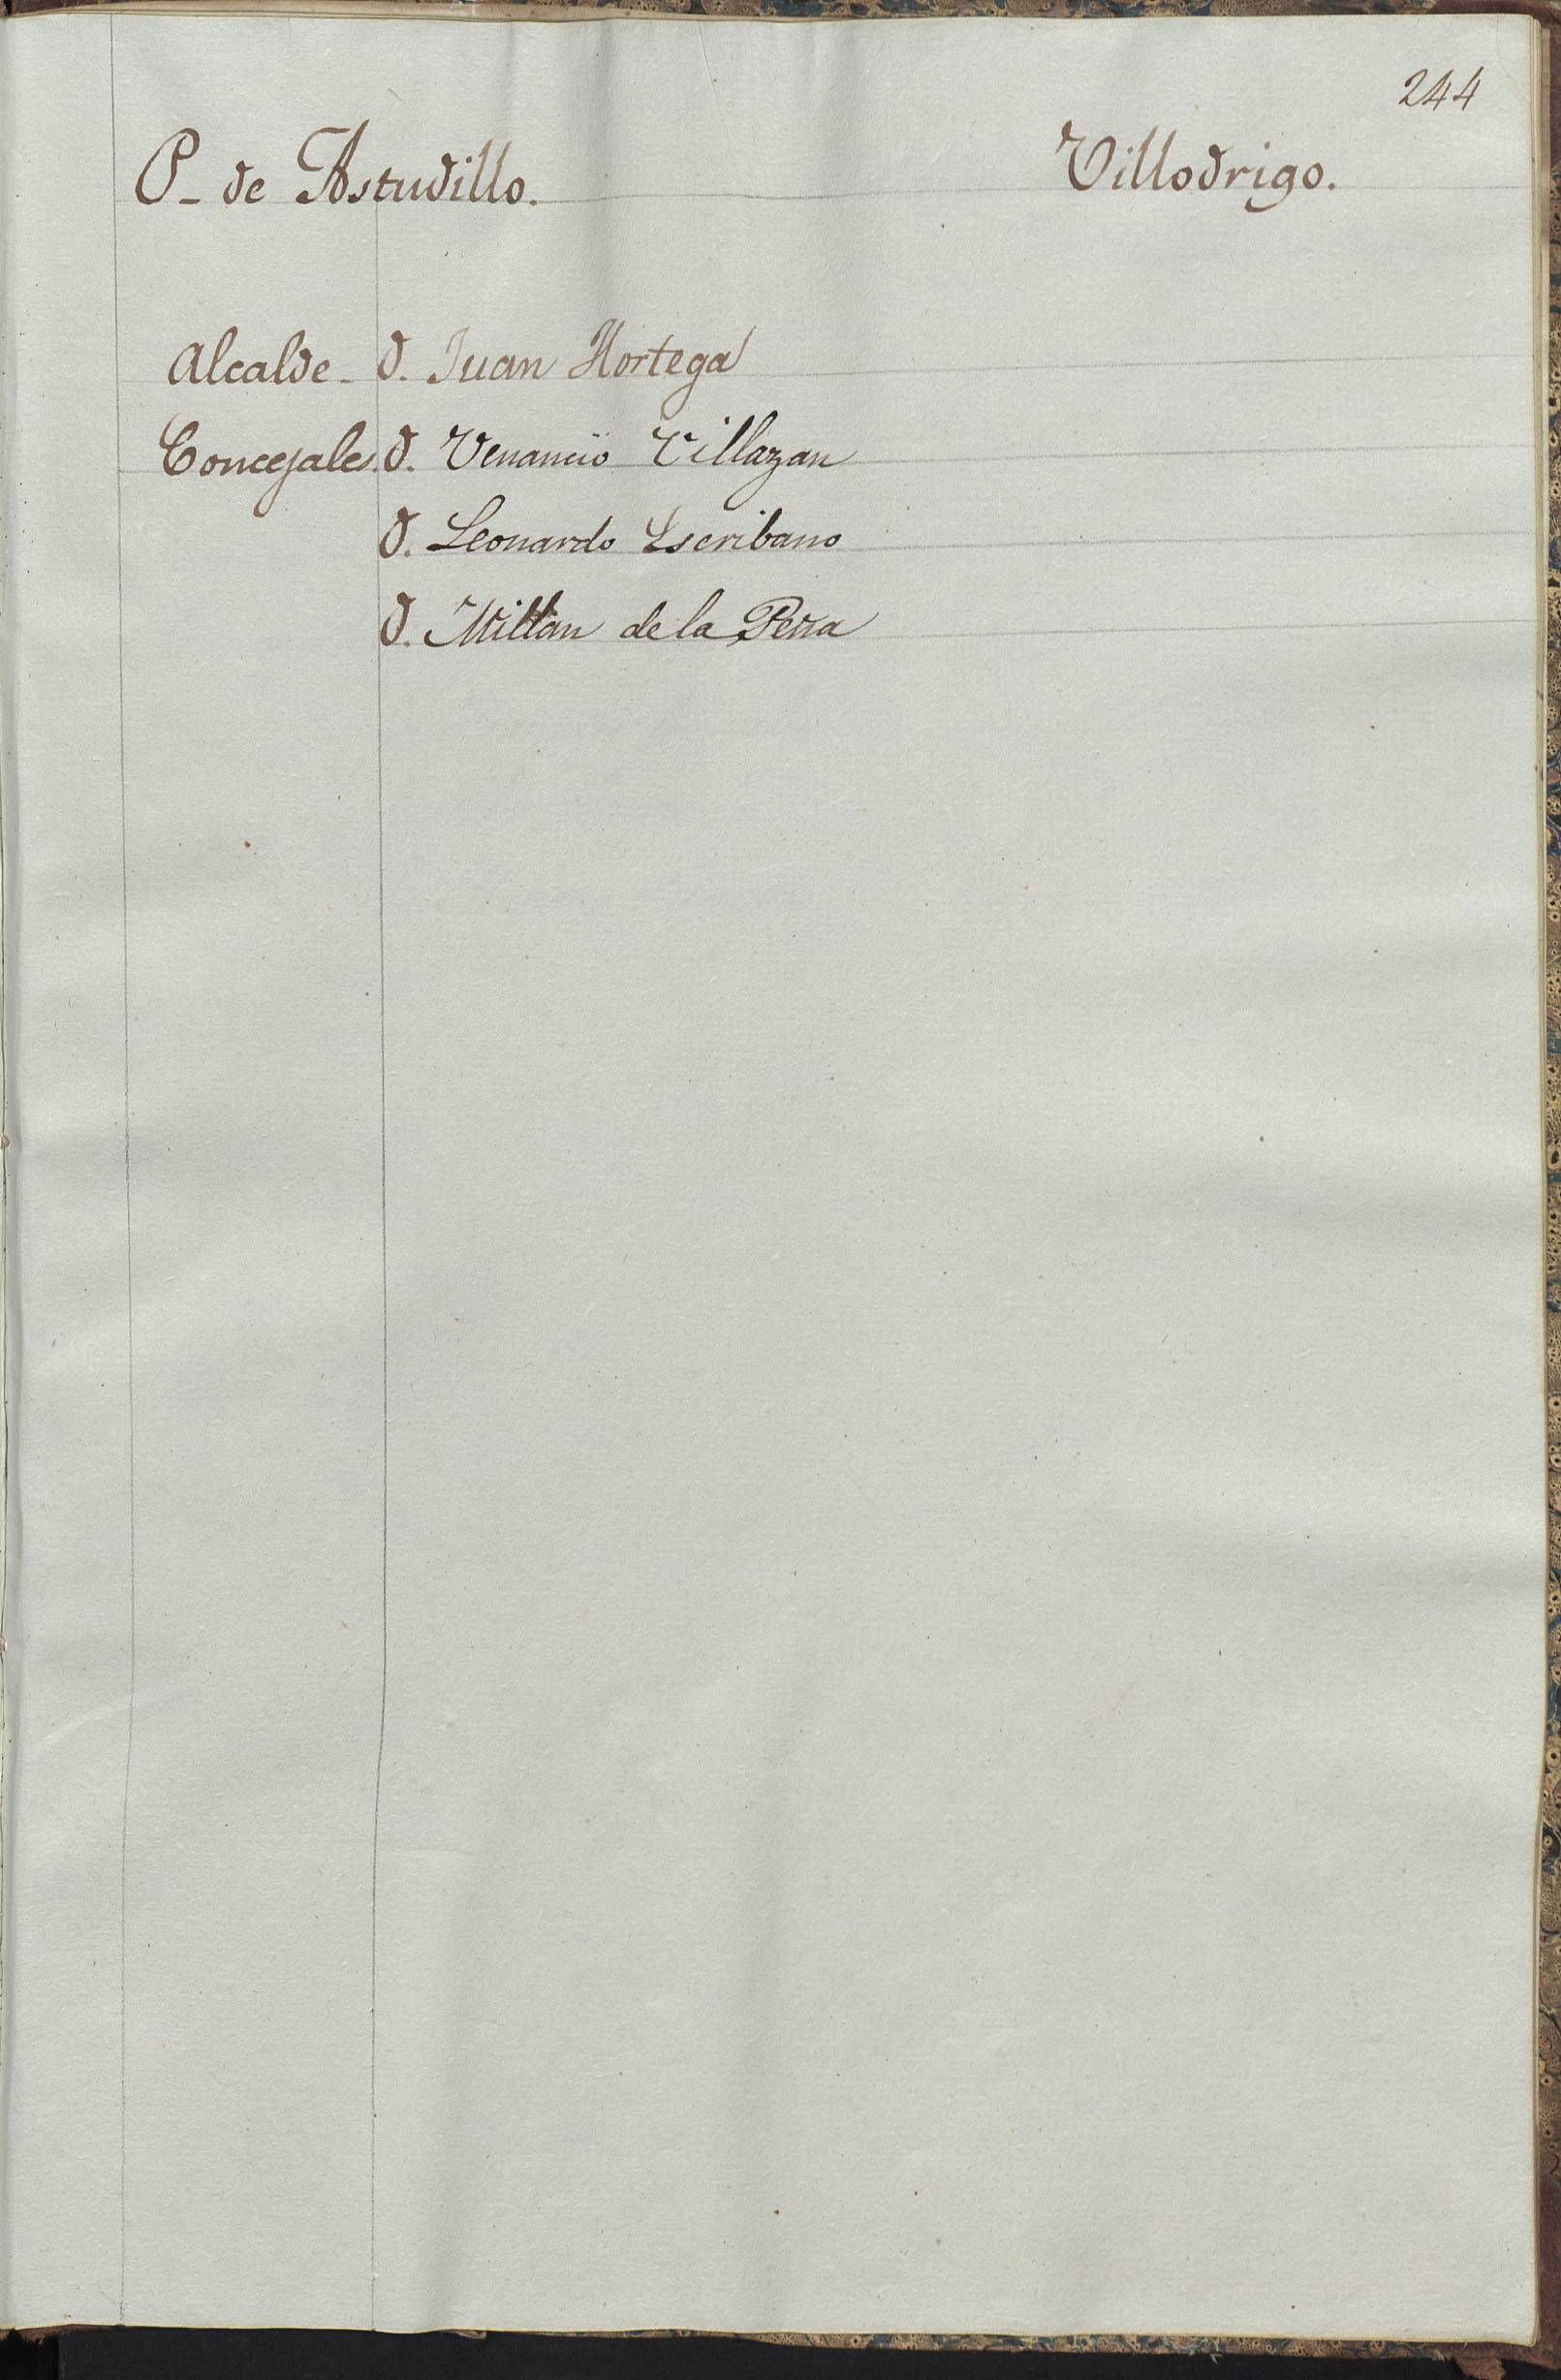 244
P- de Astudillo. Villodrigo.
Alcalde- D. Juan Hortega
Concejales. D. Venancio Villazan
D. Leonardo Escribano
D. Millan de la Peña